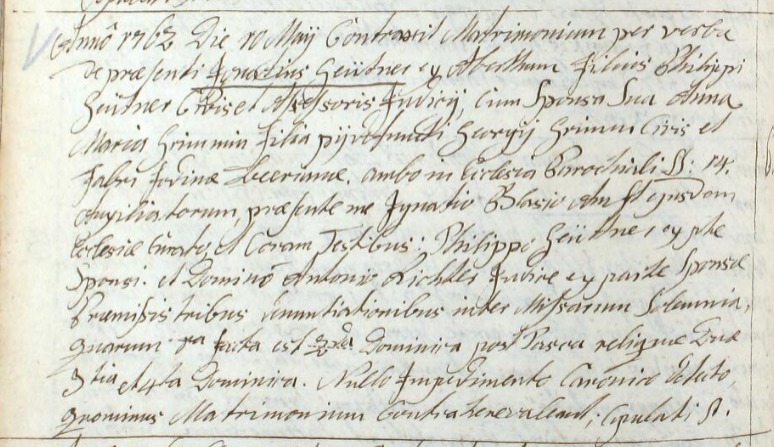 Annô 1762 Die 10 Maij Contraxit Matrimonium per verba
de præsenti Ignatius Zeütner ex Abertham Filius Philippi
Zeütner Civis et Assessoris Iudicij, cum Sponsa Sua Anna
Maria Grimmin Filia pij defuncti Georgij Grimm Civis et
Fabri ambo in Ecclesia Parochiali SS: 14.
Auxiliatorum, præsente me Ignatio Blasio ejusdem
Ecclesiæ Curato, et Coram Testibus; Philippo Zeütner ex pte
Sponsi. et Dominô Antonio Richter Iudice ex parte Sponsæ
Præmissis tribus denuntiationibus inter Missarum Solemnia,
quarum 1ma facta est 2da Dominica post Pasca reliquæ Duæ
3tia et 4ta Dominica. Nullo Impedimento Canonico detecto,
quominus Matrimonium Contrahere valeant; Copulati st.